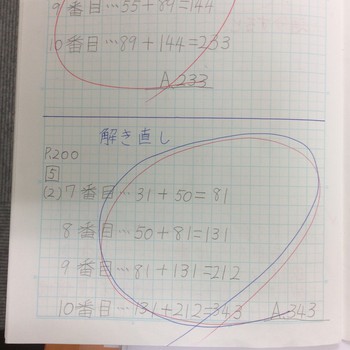 9番目…55+89=144
10番目…89+144=233
A.233
解き直し
P.200
5
(2)7番目…31+50=81
8番目…50+81=131
9番目…81+131=212
10番目…131+212=343 A.343